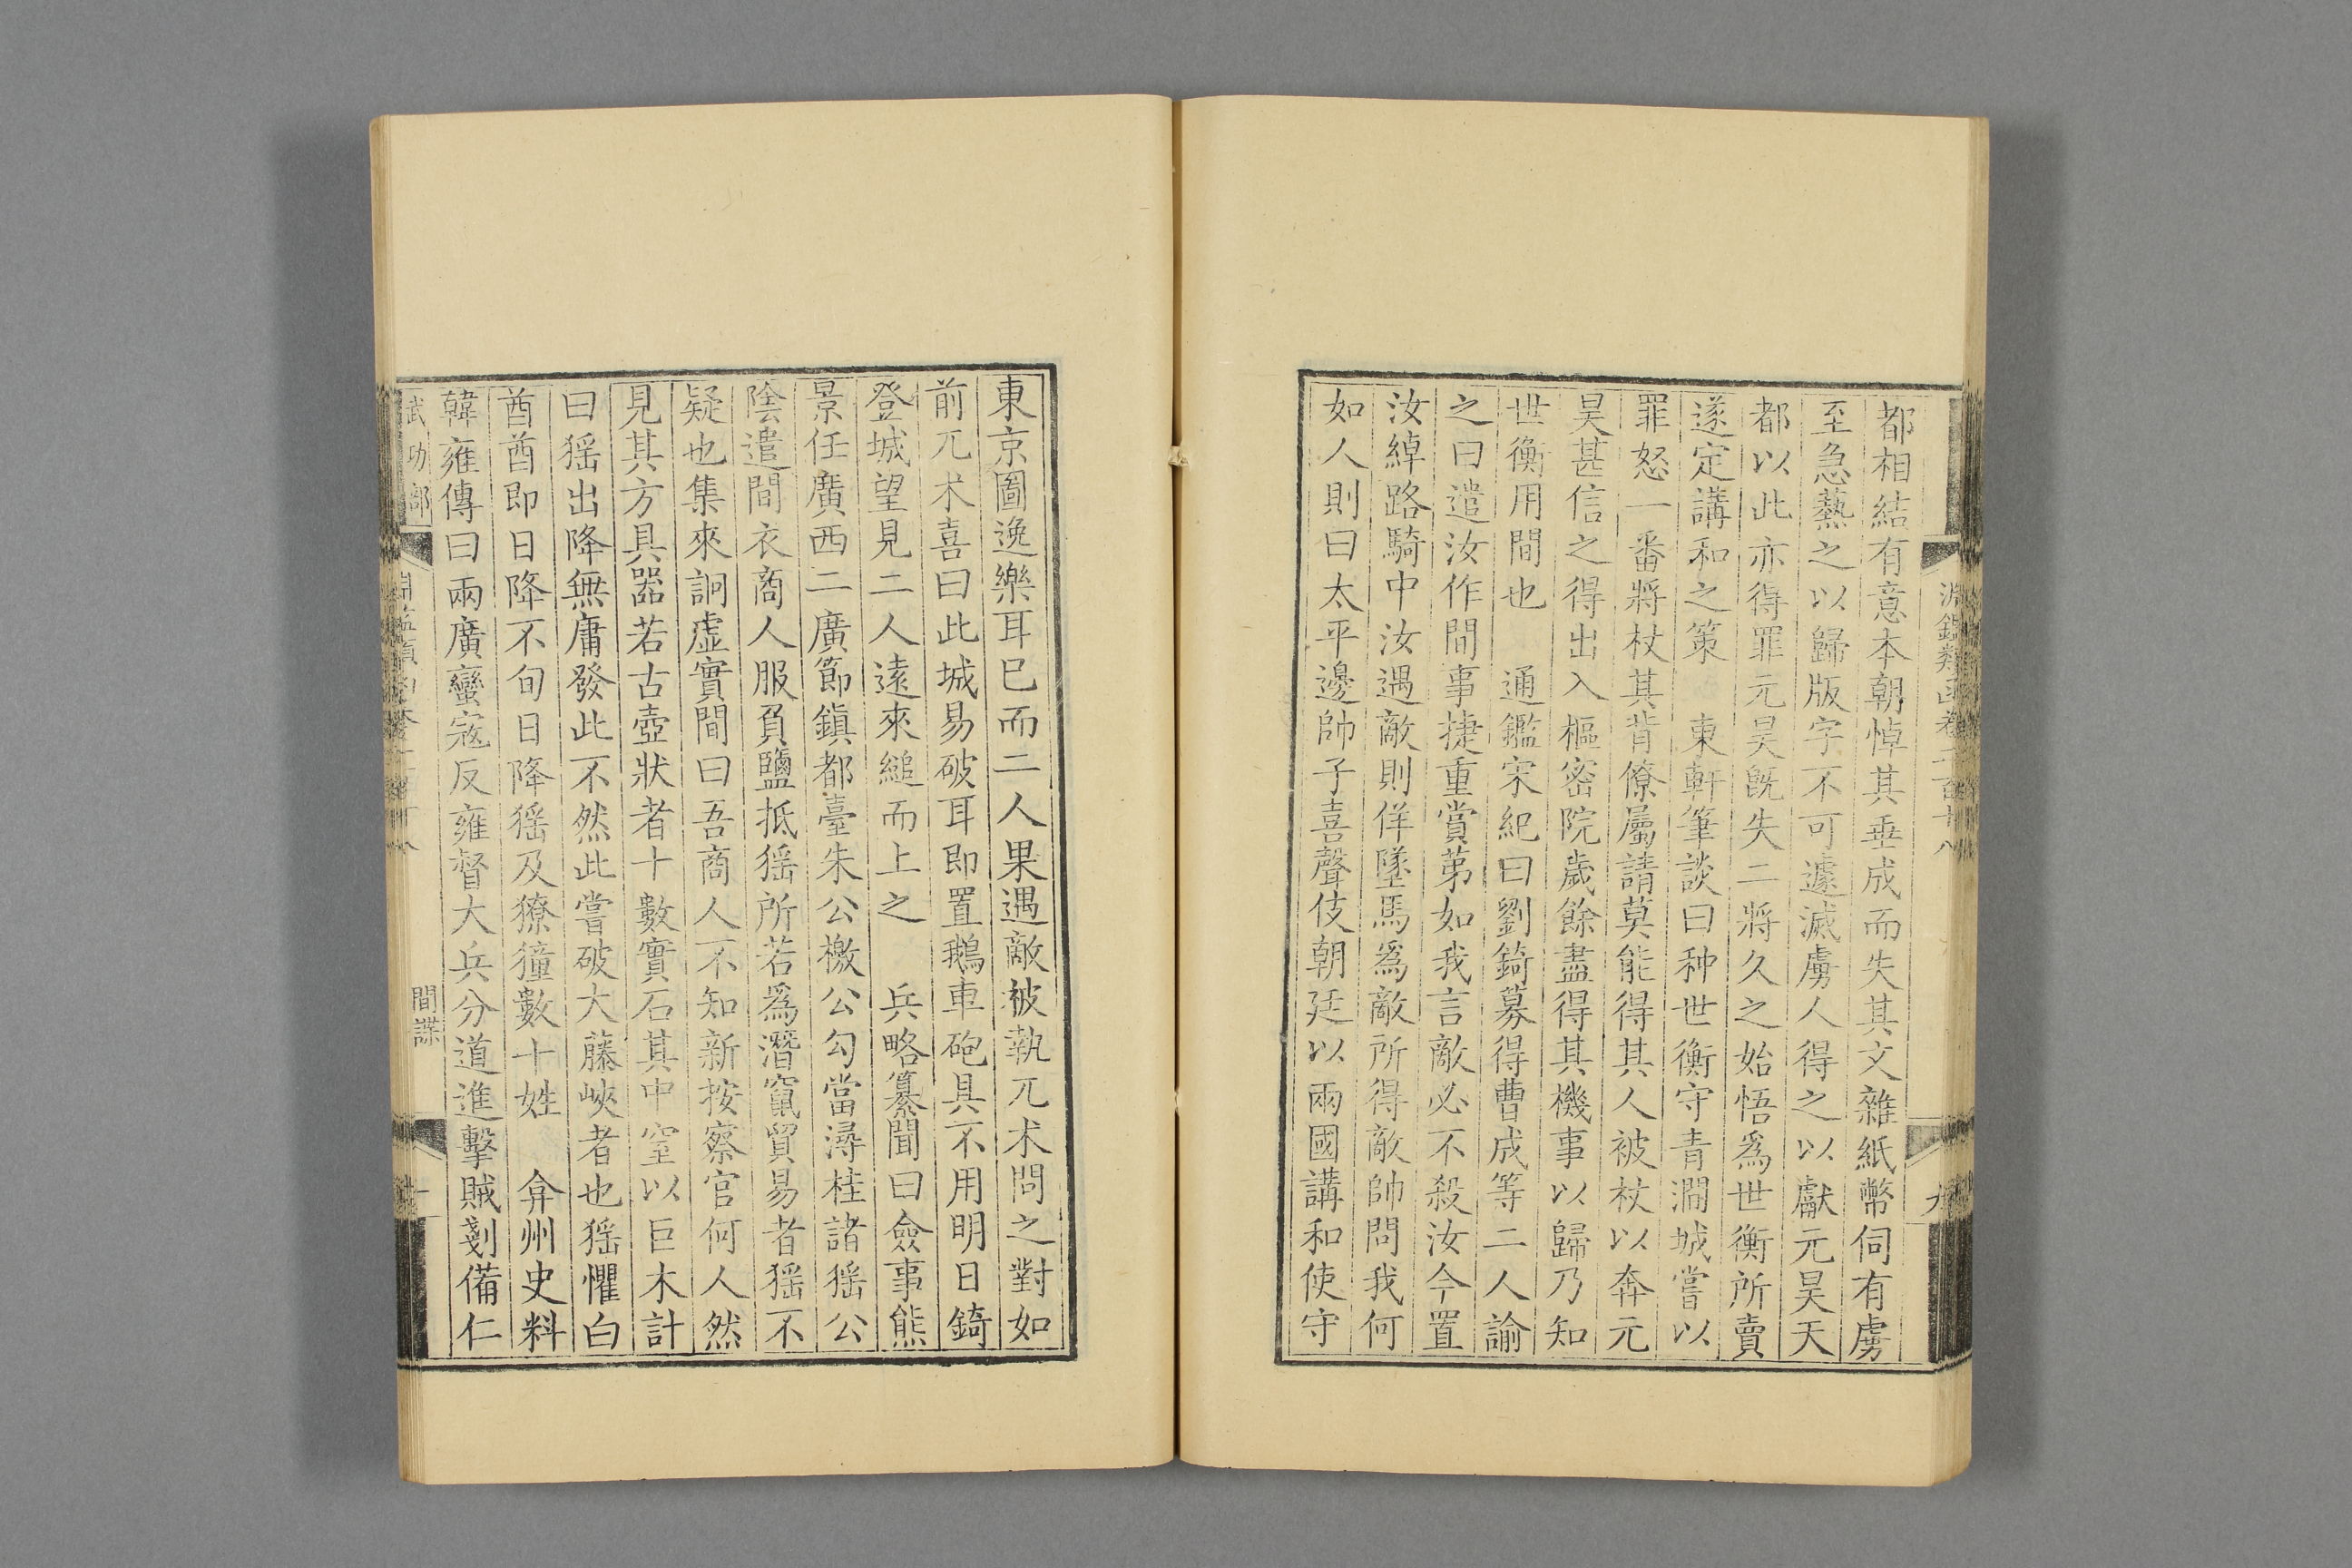 淵鑑類函卷二百十八
九
都相結有意本朝悼其垂成而失其文雜紙幣伺有虜
至急爇之以歸版字不可遽滅虜人得之以獻元昊天
都以此亦得罪元昊旣失二將久之始悟爲世衡所賣
遂定講和之策　東軒筆談曰种世衡守青澗城嘗以
罪怒一番將杖其背僚屬請莫能得其人被杖以奔元
昊甚信之得出入樞密院歲餘盡得其機事以歸乃知
世衡用間也　通鑑宋紀曰劉錡募得曹成等二人諭
之曰遣汝作間事捷重賞苐如我言敵必不殺汝今置
汝綽路騎中汝遇敵則佯墜馬爲敵所得敵帥問我何
如人則曰太平邊帥子喜聲伎朝廷以兩國講和使守
東京圖逸樂耳已而二人果遇敵被執兀朮問之對如
前兀朮喜曰此城易破耳即置鵝車砲具不用明日錡
登城望見二人遠來縋而上之　兵略纂聞曰僉事熊
景任廣西二廣節鎮都臺朱公檄公勾當潯桂諸猺公
陰遣間衣商人服負鹽抵猺所若爲潛竄貿易者猺不
疑也集來詗虚實間曰吾商人不知新按察官何人然
見其方具器若古壺狀者十數實石其中窒以巨木計
曰猺出降無庸發此不然此嘗破大藤峽者也猺懼白
酋酋即日降不旬日降猺及獠獞數十姓　弇州史料
韓雍傳曰兩廣蠻寇反雍督大兵分道進擊賊剗備仁
武功部
間諜